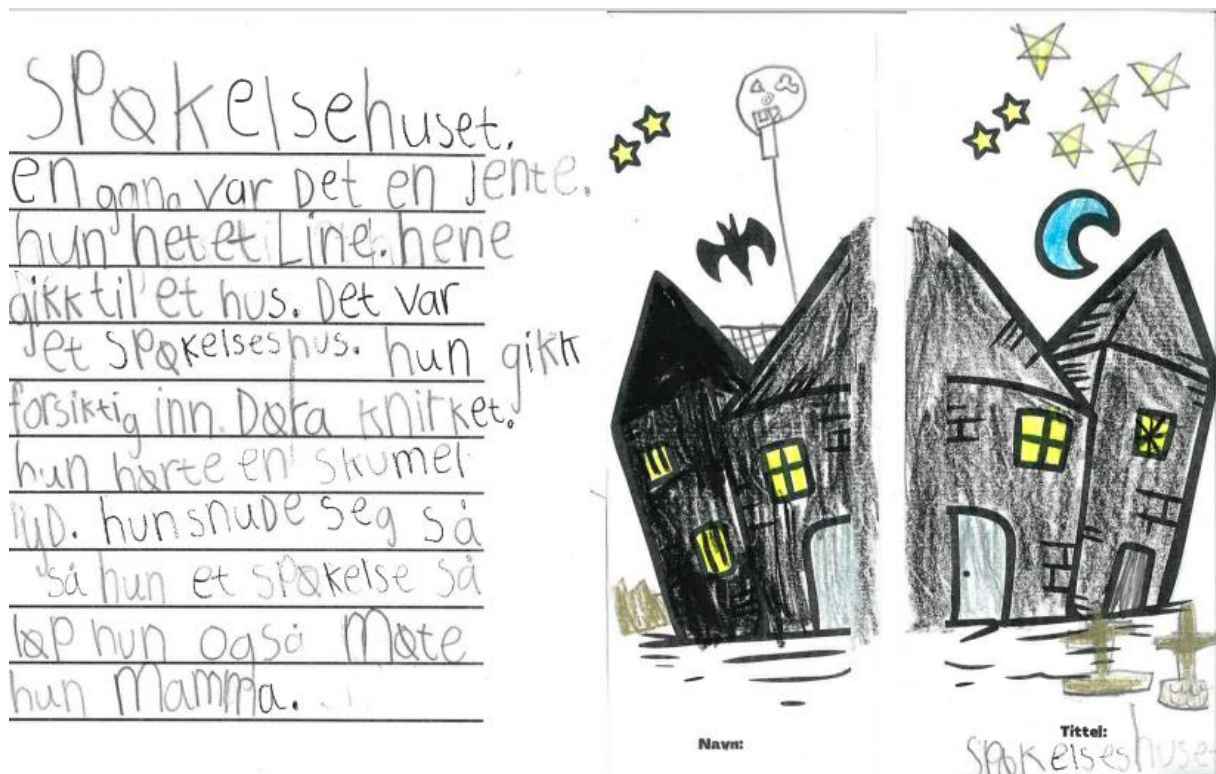 SPØkelsehuset.
en gang var Det en Jente.
hun het et Line. hene
gikk til et hus. Det var
et SPøkelseshus. hun gikk
forsiktig inn. Døra knirket.
hun hørte en skumel
lyD. hun snuDe seg så
så hun et spøkelse så
løp hun også Møte
hun Mamma.
Navn:
Tittel:
SPøkelseshuset